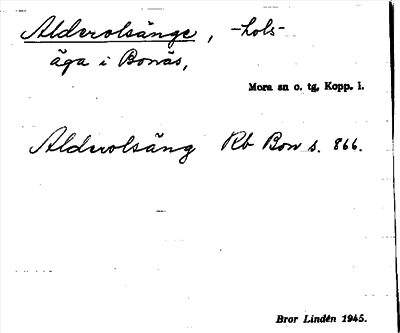 Aldervolsänge, -hols-
äga i Bonäs,
Mora sn o. tg, Kopp. l.
Aldervolsäng Rb Bon s. 866.
Bror Lindén 1945.